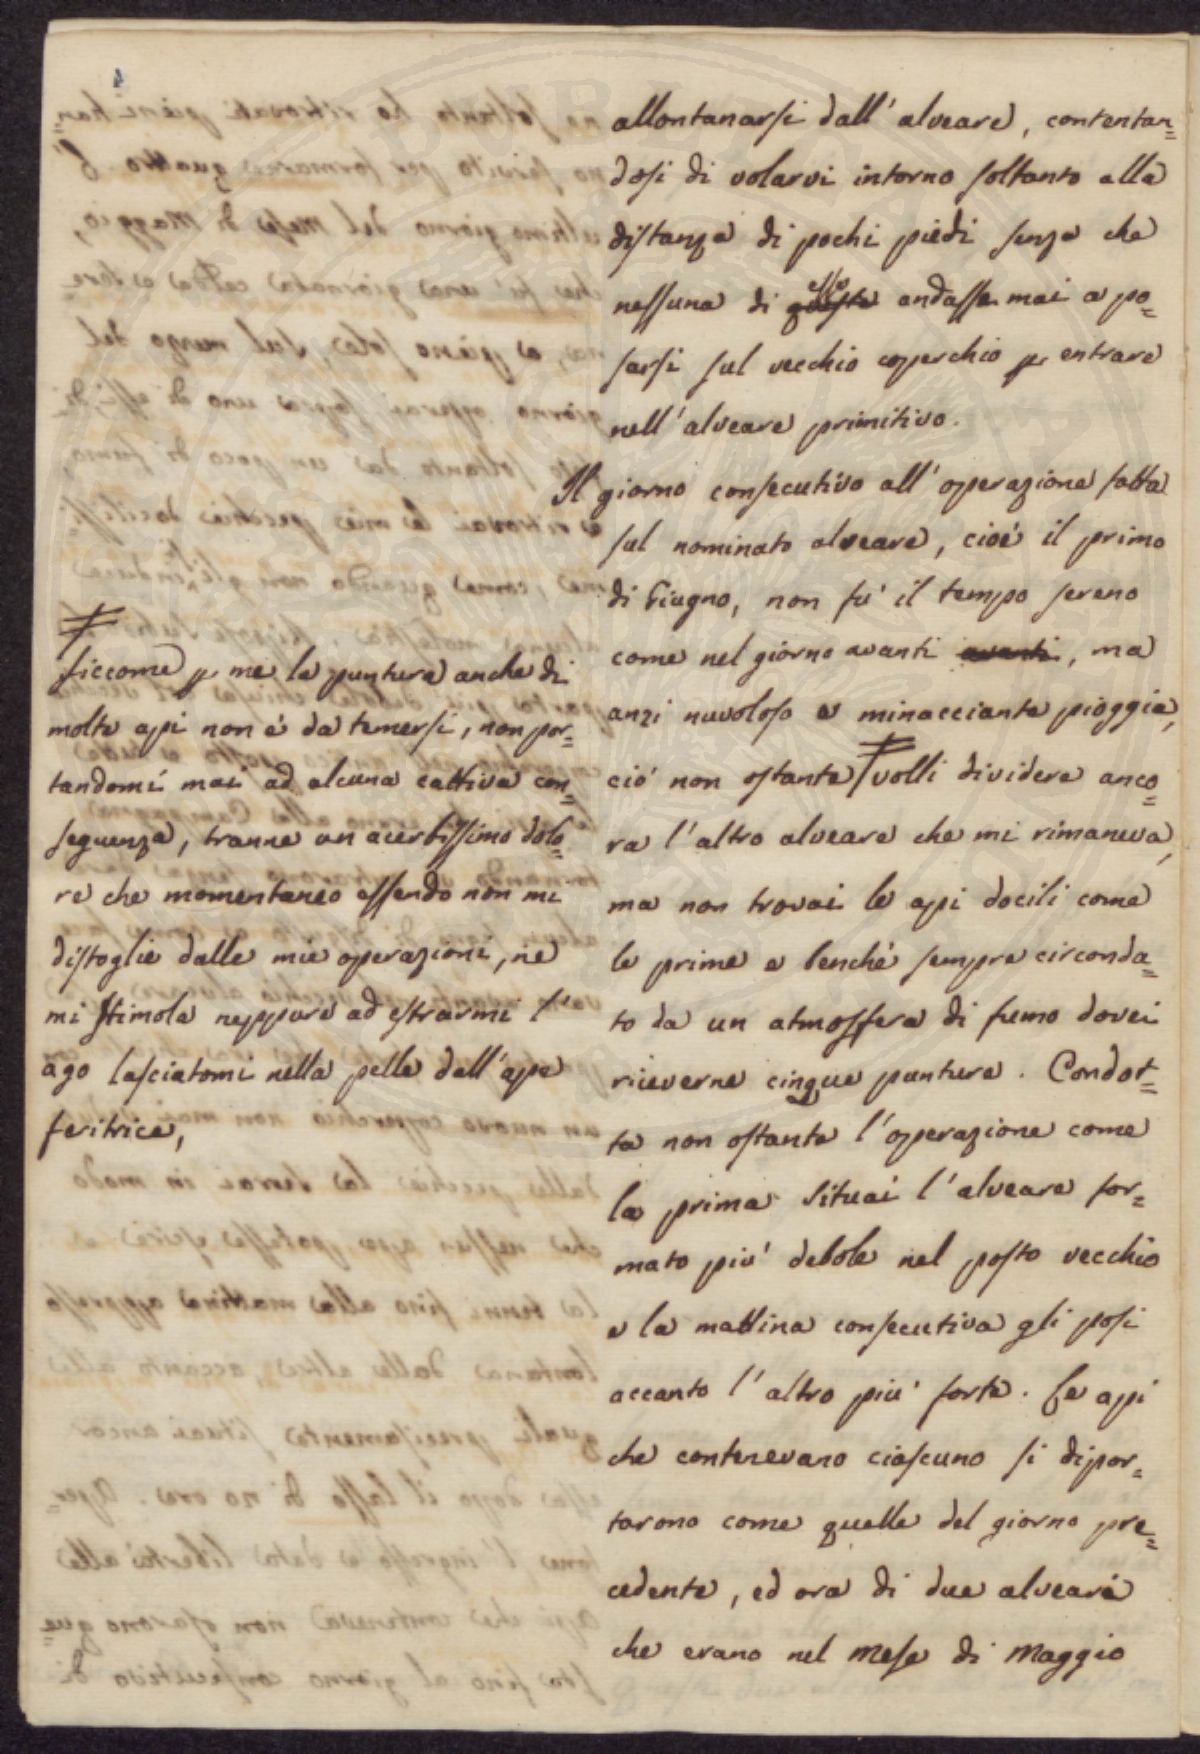 allontanarsi dall'alveare, contentan=
dosi di volarvi intorno soltanto alla
distanza di pochi piedi senza che
esse
nessuna di queste andasse mai a po=
sarsi sul vecchio coperchio p entrare
nell'alveare primitivo.
Il giorno consecutivo all'operazione fatta
sul nominato alveare, cioè il primo
di Giugno, non fu' il tempo sereno
come nel giorno avanti avanti, ma
anzi nuvoloso e minacciante pioggia,
ciò non ostante ‡ volli dividere anco=
ra l'altro alveare che mi rimaneva,
ma non trovai le api docili come
le prime e benchè sempre circonda=
to da un atmosfera di fumo dovei
riceverne cinque punture. Condot=
ta non ostante l'operazione come
la prima situai l'alveare for=
mato più debole nel posto vecchio
e la mattina consecutiva gli posi
accanto l'altro più forte. Le api
che contenevano ciascuno si dipor=
tarono come quelle del giorno pre=
cedente, ed ora di due alveari
che erano nel Mese di Maggio
‡
siccome p me la puntura anche di
molte api non è da temersi, non por=
tandomi mai ad alcuna cattiva con=
seguenza, tranne un acerbissimo dolo=
re che momentaneo essendo non mi
distoglie dalle mie operazioni, ne
mi stimola neppure ad estrarmi l'
ago lasciatomi nella pelle dall'ape
feritrice,